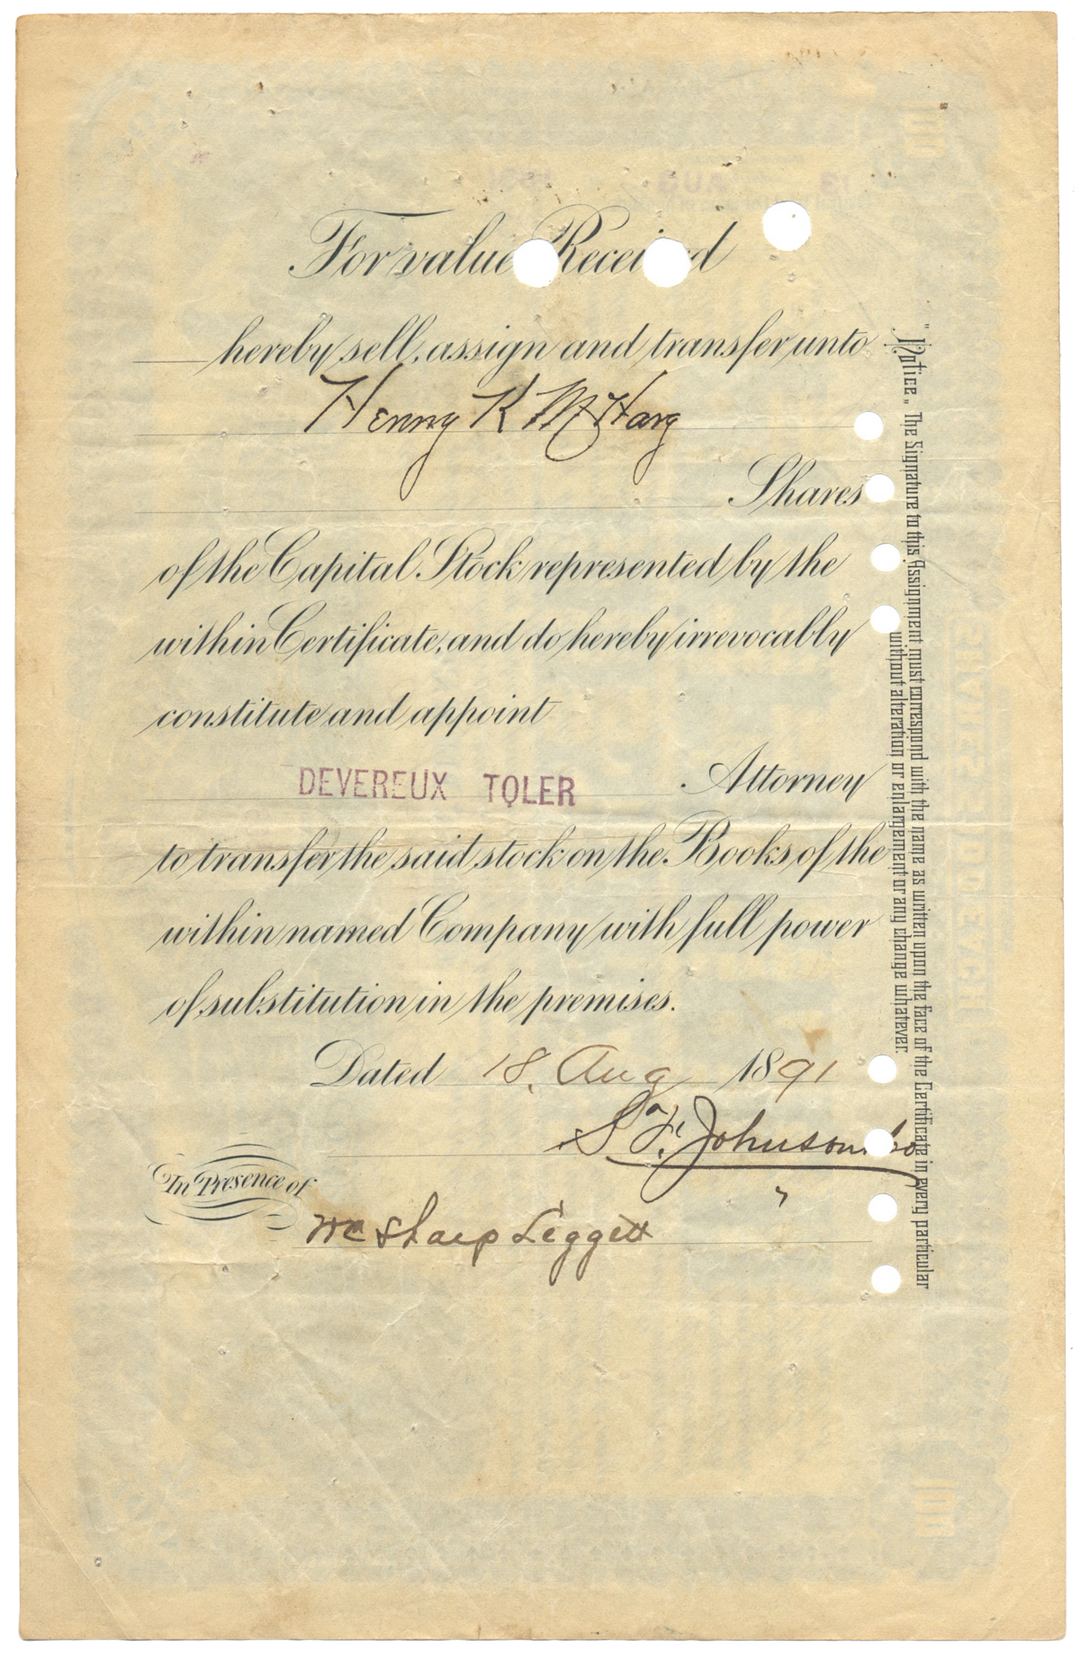 For value Received
hereby sell, assign and transfer unto
Henry K McHarg
Shares
of the Capital Stock represented by the
within Certificate, and do hereby irrevocably
constitute and appoint
DEVEREUX TOLER Attorney
to transfer the said stock on the Books of the
within named Company with full power
of substitution in the premises.
Dated 18. Aug 1891
S. F. Johnson Co
In Presence of
Wm Sharp Leggett
"Notice." The Signature to this Assignment must correspond with the name as written upon the face of the Certificate in every particular
without alteration or enlargement or any change whatever.